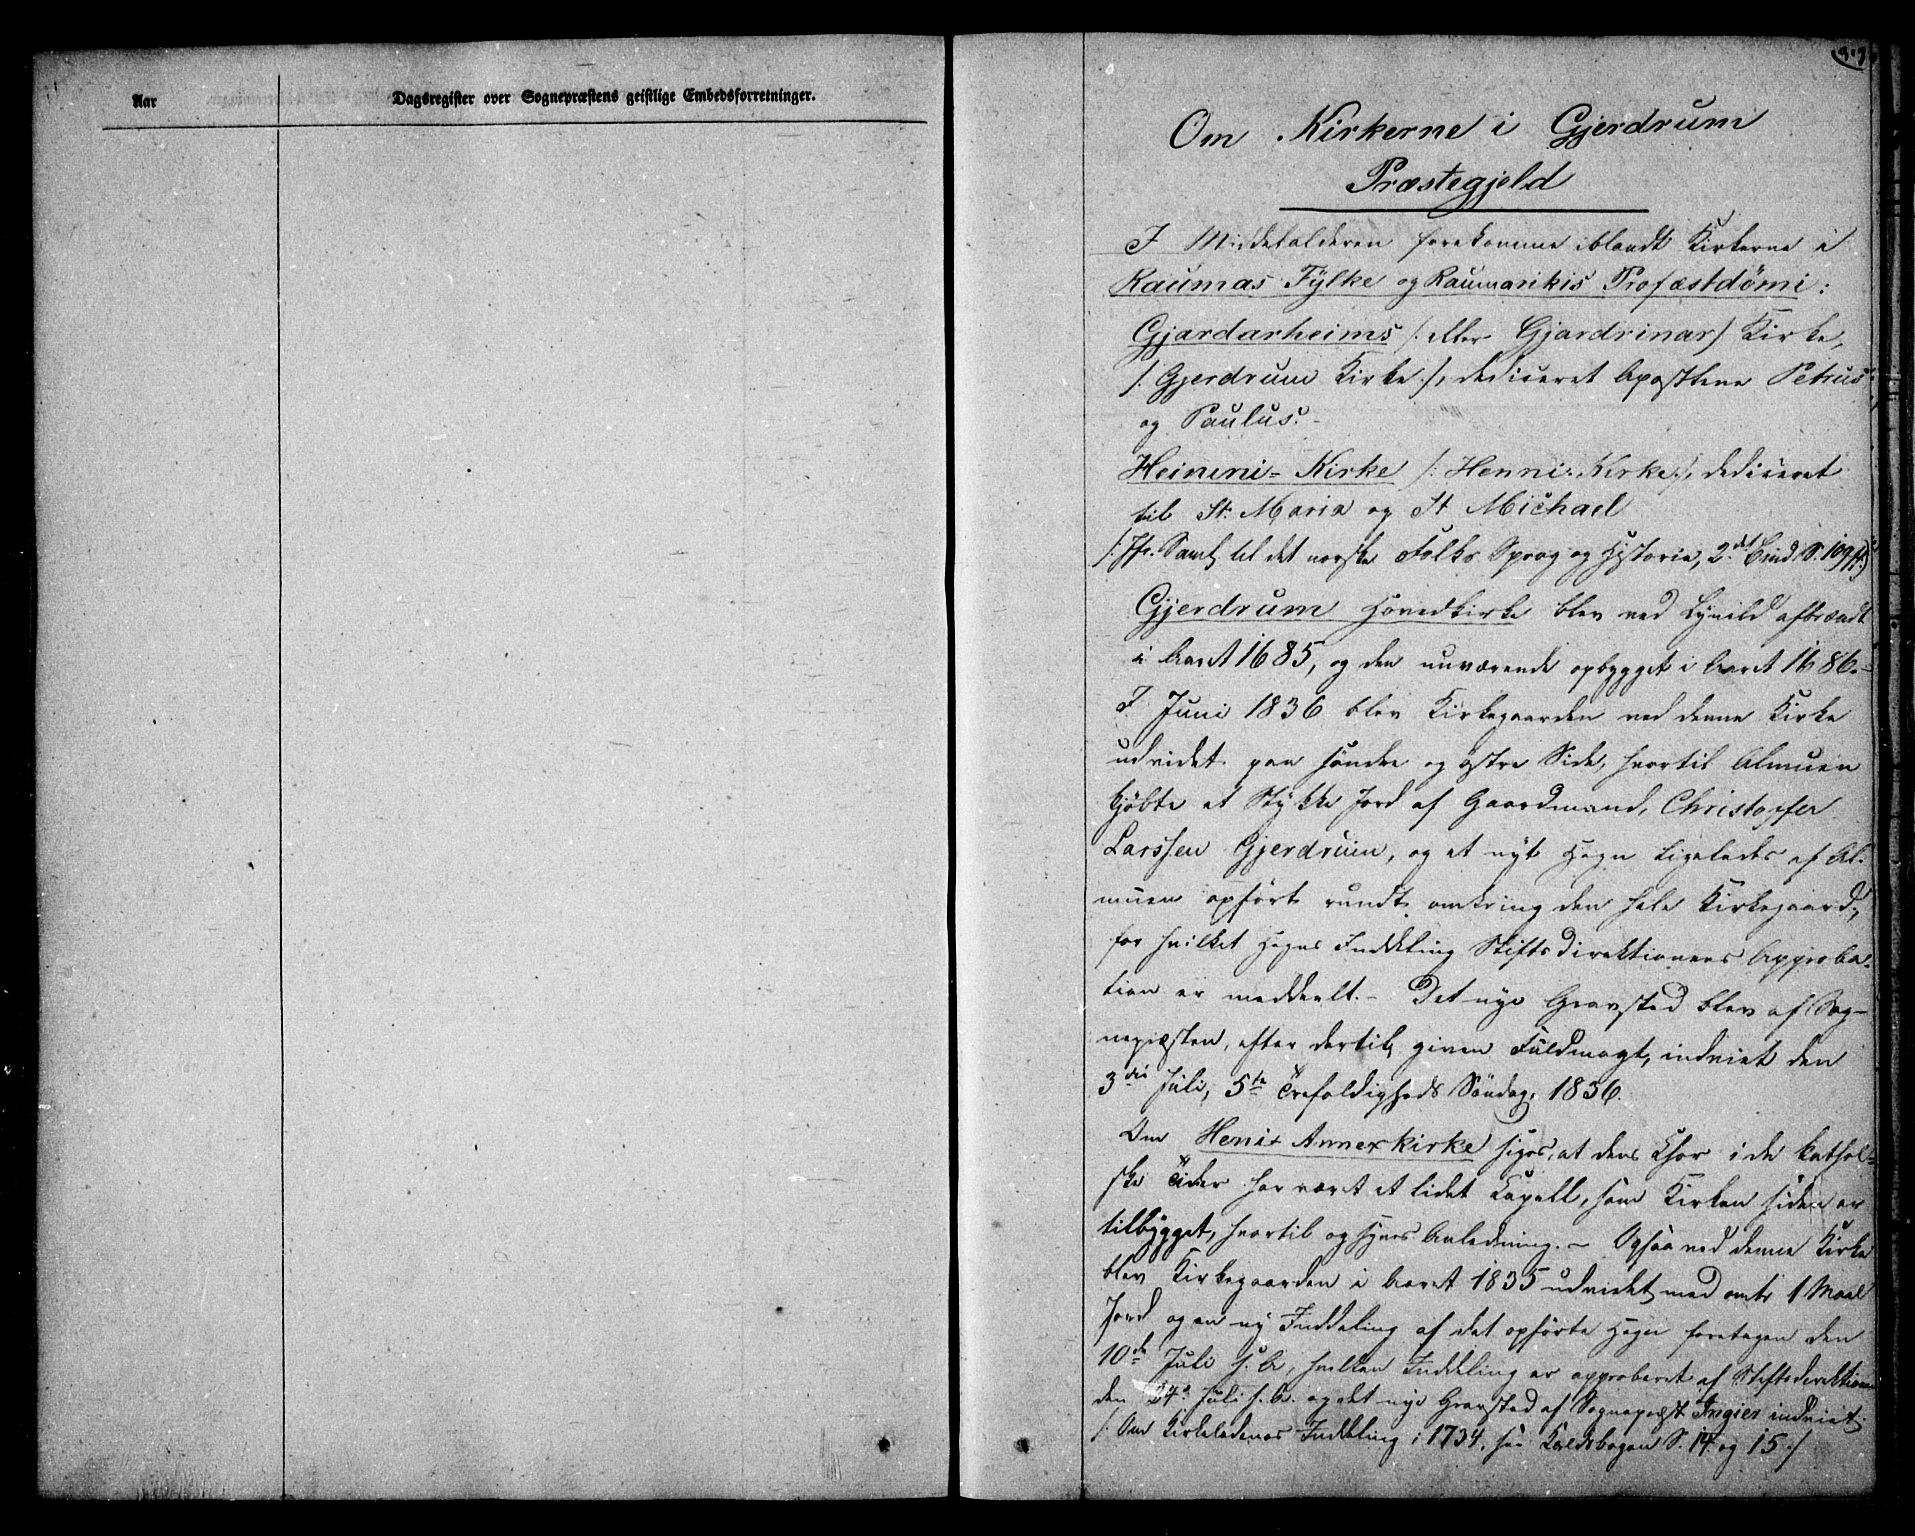 Aar
Dagsregister over Sognepræstens geistlige Embedsforretninger.
Om Kirkerne i Gjerdrum
Præstegjeld
I Middelalderen forekomme iblandt Kirkerne i
Raumas Fylke og Raumarikis Profæstdømi:
Gjardarheims /: eller Gjardrinar/ Kirke,
/: Gjerdrum Kirke :/, dediceret Apostlene Petrus
og Paulus. -
Heineni-Kirke /: Henni-Kirke :/, dediceret
til St. Maria og St Michael
/: Jfr. Saml. til det norske Folks Sprog og Historie, 2det Bind S. 109 ff :/
Gjerdrum Hovedkirke blev ved Lynild afbrændt
i Aaret 1685, og den nuværende opbygget i Aaret 1686. -
I Juni 1836 blev Kirkegaarden ved denne Kirke
udvidet paa søndre og østre Side, hvortil Almuen
kjøbte et Stykke Jord af Gaardmand, Christopher
Larssen Gjerdrum, og et nyt Hegn ligeledes af Al-
muen opført rundt omkring den hele Kirkegaard,
for hvilket Hegns Inddeling Stiftsdirektionens Approba-
tion er meddeelt. - Det nye Gravsted blev af Sog-
nepræsten, efter dertil given Fuldmagt, indviet den
3die Juli, 5te Trefoldigheds Søndag, 1836.
Om Heni-Annexkirke siges, at dens Chor i de kathol-
ske Tider har været et lidet Capell, som Kirken siden er
tilbygget, hvortil og synes Anledning. - Ogsaa ved denne Kirke
blev Kirkegaarden i Aaret 1835 udvidet med omtr 1 Maal
Jord og en ny Inddeling af det opførte Hegn foretagen den
10de Juli s. A., hvilken Inddeling er approberet af Stiftsdirektionen
den 24de Juli s. A. og det nye Gravsted af Sognepræst Ingier indviet.
/: Om Kirkeladenes Inddeling i 1734, see Kaldsbogen S. 14 og 15 :/